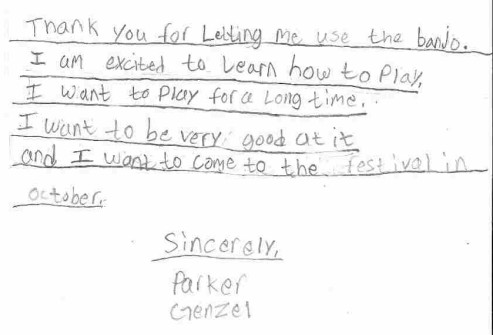 Thank you for Letting me use the banjo.
I am excited to Learn how to Play,
I want to Play for a Long time.
I want to be very good at it
and I want to come to the festival in
october.
Sincerely,
Parker
Genzel